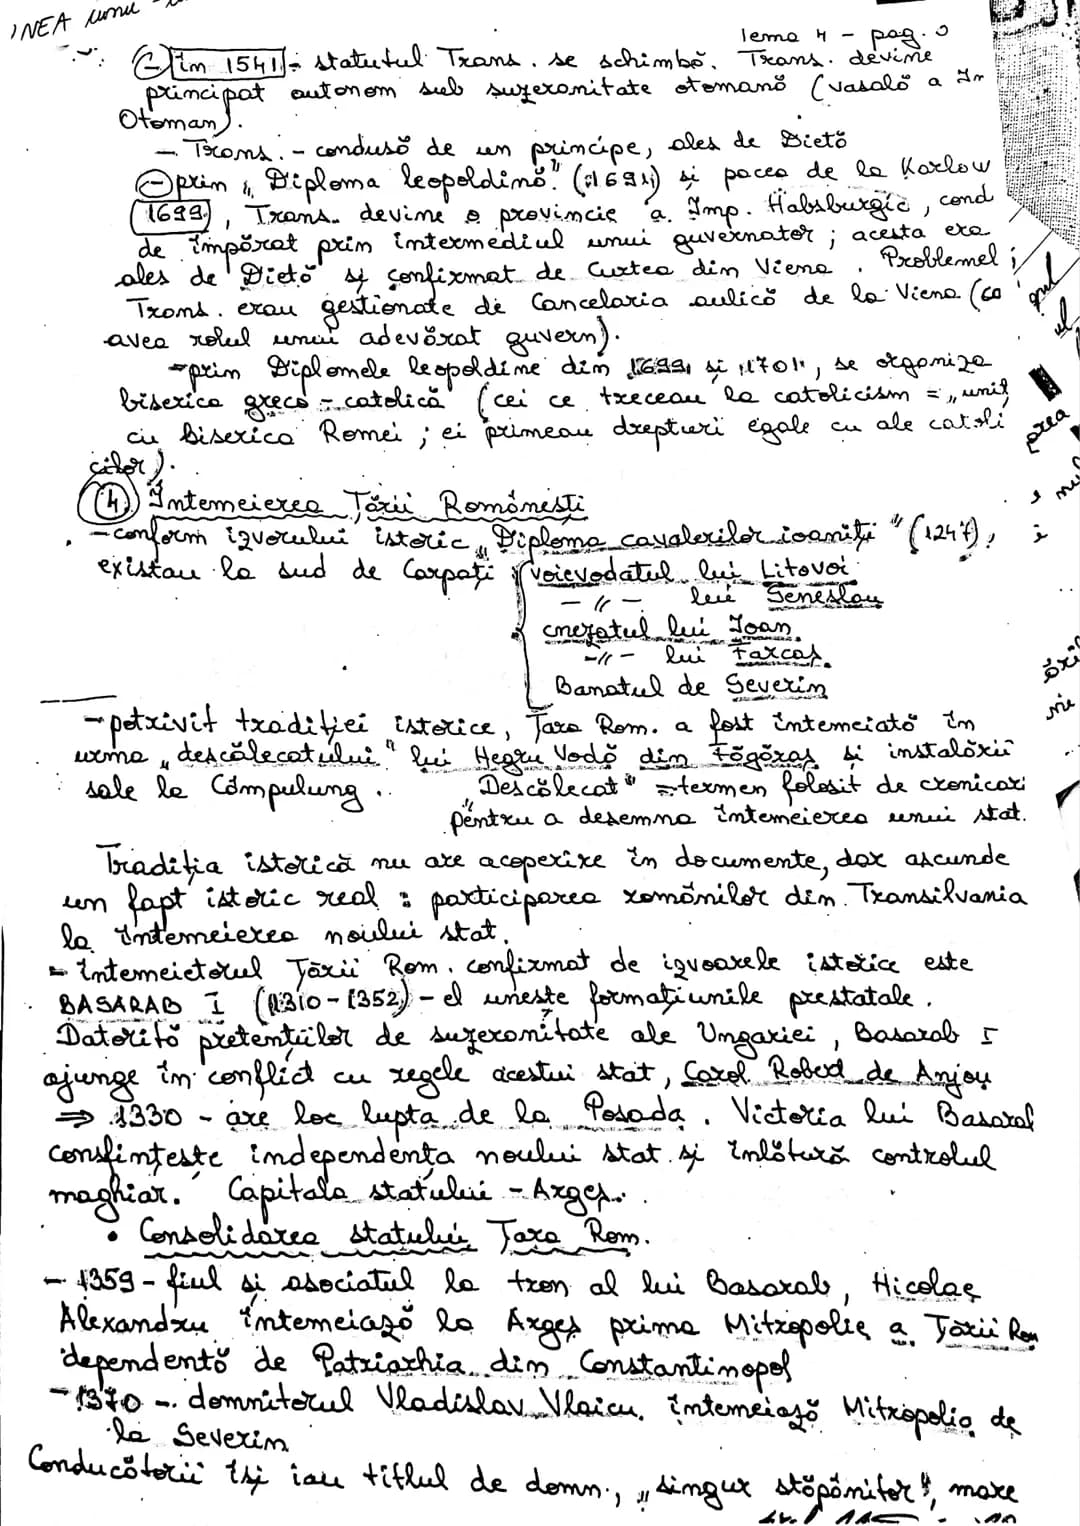 Tema 4 - pag.
în 1541 - statutul Trans. se schimbă. Trans. devine
principat autonom sub suzeranitate otomană (vasală a Im
Otoman).
- Trans. - condusă de un principe, ales de Dietă
- prin "Diploma leopoldină" (1691) și pacea de la Karlow
1699, Trans. devine o provincie a Imp. Habsburgic, cond
de împărat prin intermediul unui guvernator; acesta era
ales de Dietă și confirmat de Curtea din Viena. Problemel
Trans. erau gestionate de Cancelaria aulică de la Viena (ca
avea rolul unui adevărat guvern).
- prin Diplomele leopoldine din 1699 și 1701, se organiza
biserica greco-catolică (cei ce treceau la catolicism = "unit
cu biserica Romei; ei primeau drepturi egale cu ale catoli
cilor).
4. Întemeierea Țării Românești
- conform izvorului istoric "Diploma cavalerilor ioaniți" (1247),
existau la sud de Carpați { voievodatul lui Litovoi
-//- lui Seneslau
cnezatul lui Ioan
-//- lui Farcaș
Banatul de Severin
- potrivit tradiției istorice, Țara Rom. a fost întemeiată în
urma "descălecatului" lui Negru Vodă din Făgăraș și instalării
sale la Câmpulung.
"Descălecat" = termen folosit de cronicari
pentru a desemna întemeierea unui stat.
Tradiția istorică nu are acoperire în documente, dar ascunde
un fapt istoric real : participarea românilor din Transilvania
la întemeierea noului stat.
- întemeietorul Țării Rom. confirmat de izvoarele istorice este
BASARAB I (1310-1352) - el unește formațiunile prestatale.
Datorită pretențiilor de suzeranitate ale Ungariei, Basarab I
ajunge în conflict cu regele acestui stat, Carol Robert de Anjou
⇒ 1330 - are loc lupta de la Posada. Victoria lui Basarab
consfințește independența noului stat și înlătură controlul
maghiar. Capitala statului - Argeș.
• Consolidarea statului Țara Rom.
- 1359 - fiul și asociatul la tron al lui Basarab, Nicolae
Alexandru întemeiază la Argeș prima Mitropolie a Țării Rom
dependentă de Patriarhia din Constantinopol
- 1370 - domnitorul Vladislav Vlaicu întemeiază Mitropolia de
la Severin
Conducătorii își iau titlul de domn, "singur stăpânitor", mare